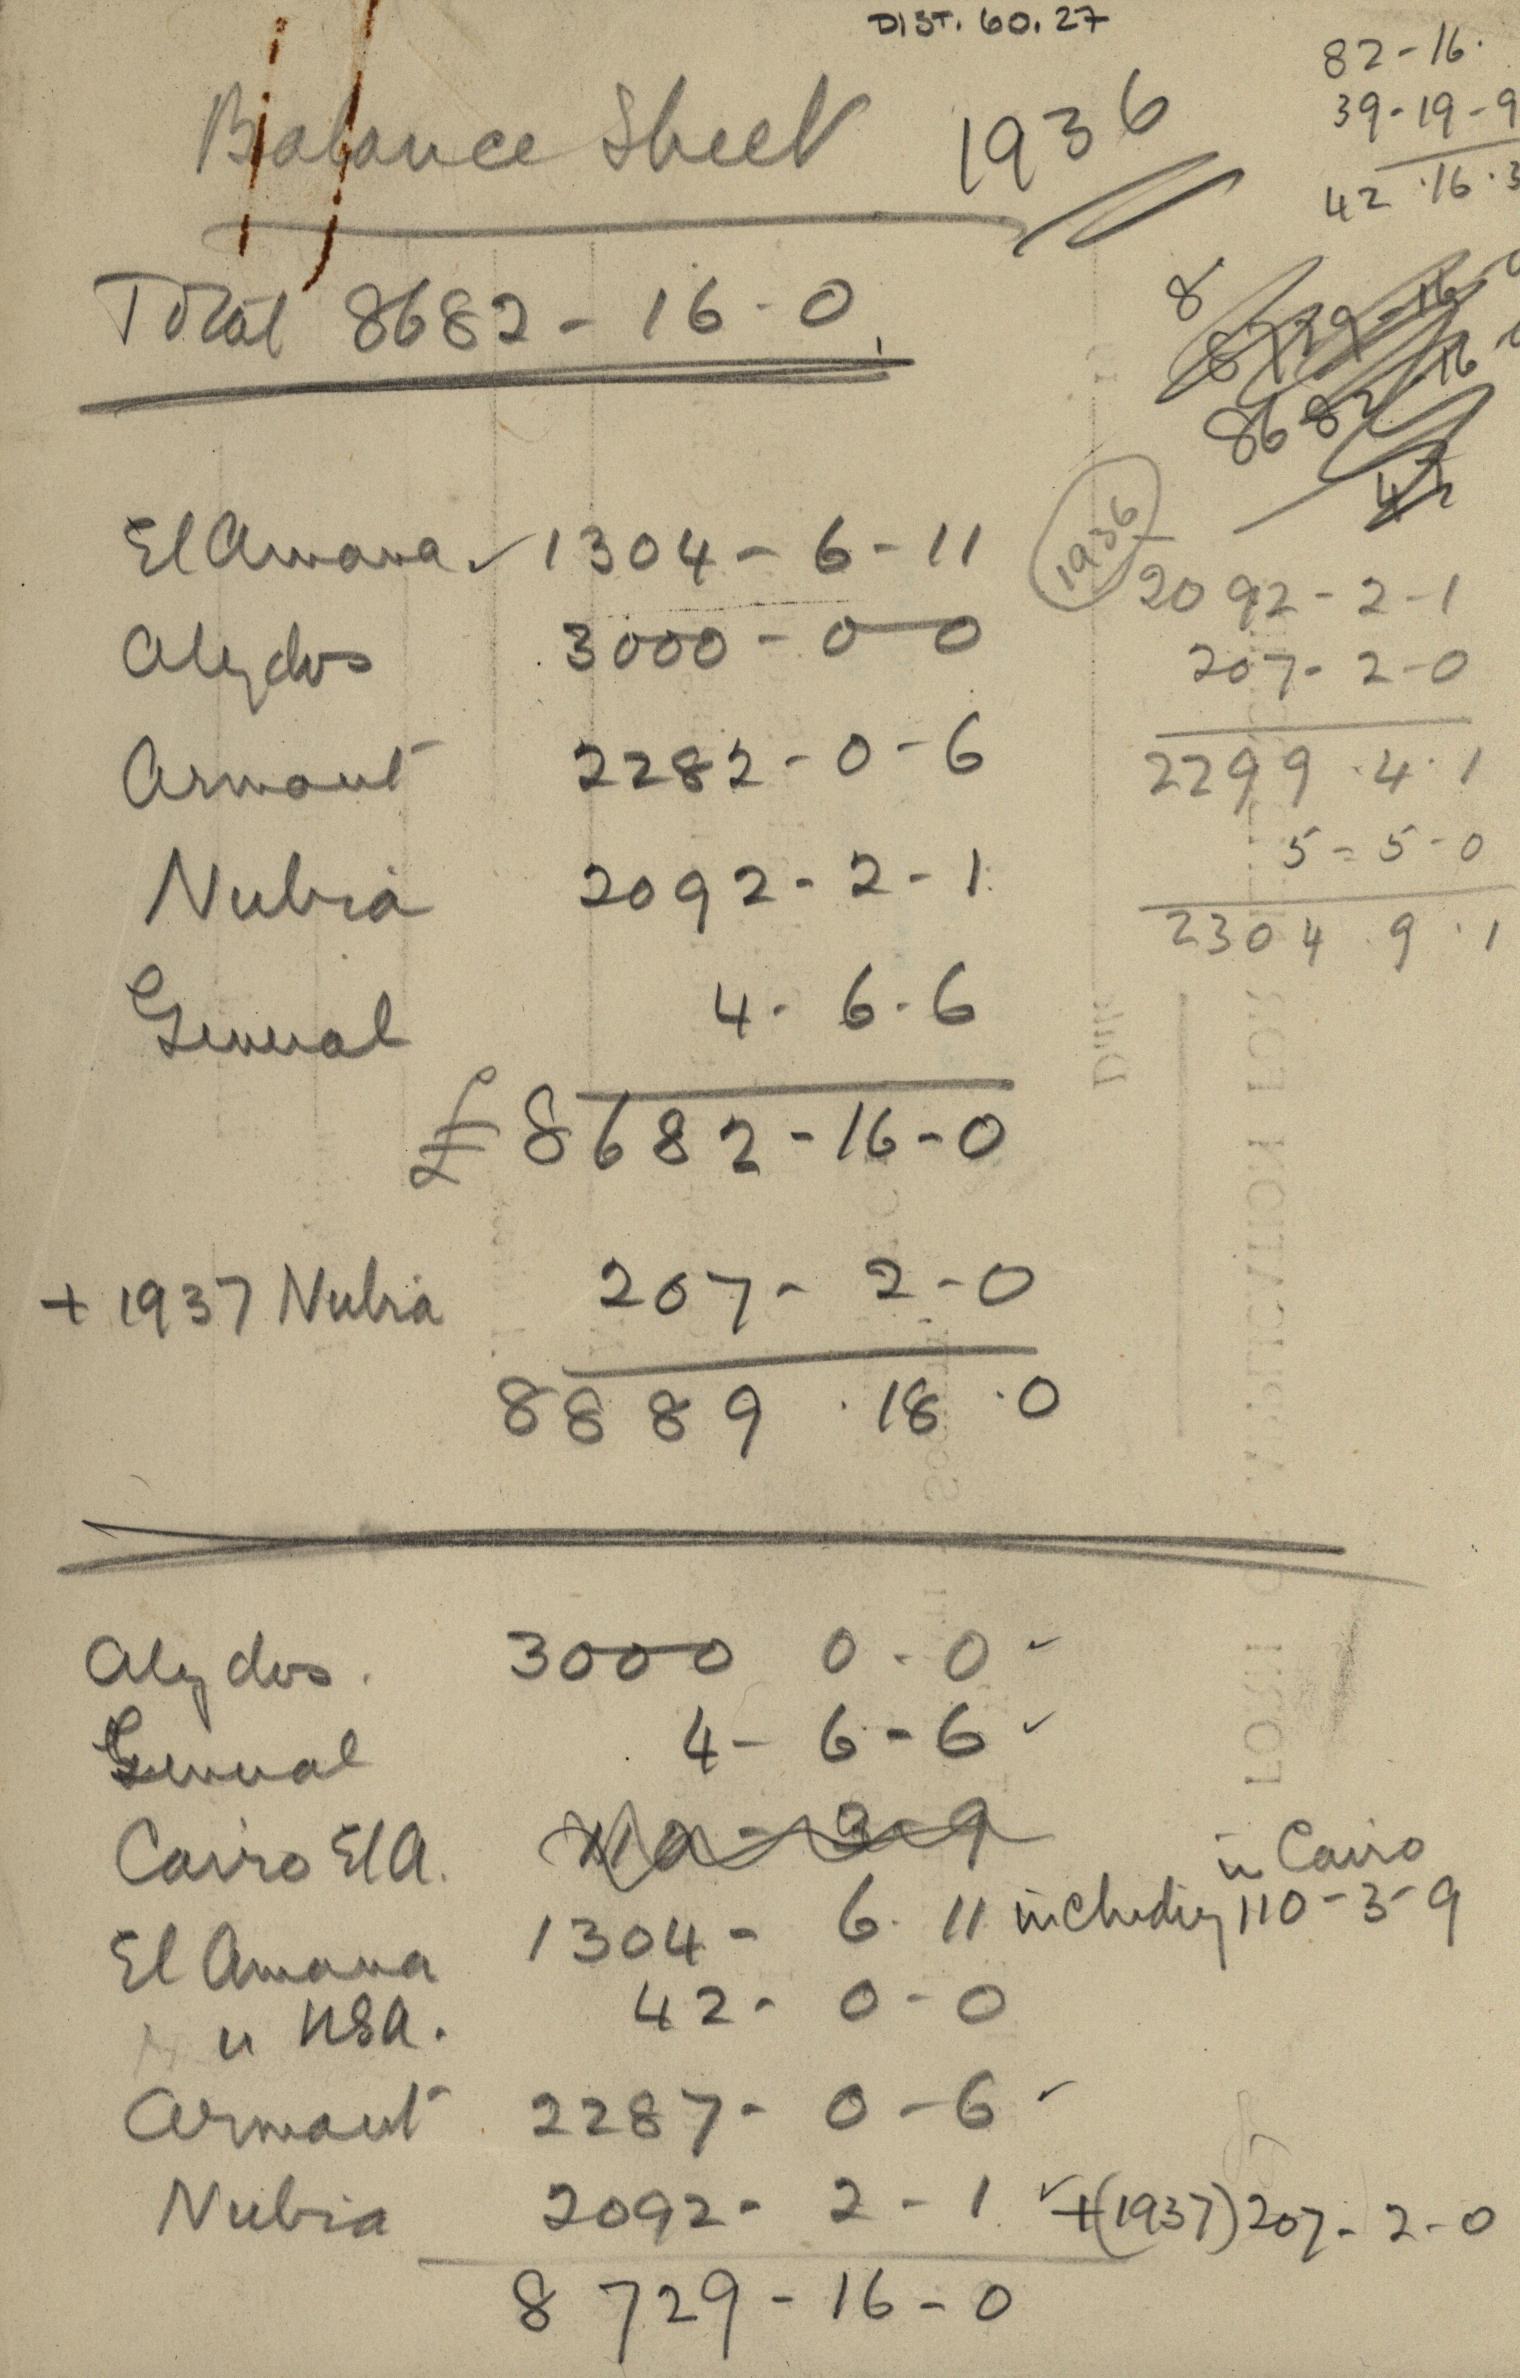 DIST. 60.27
82-16.
39-19-9
42.16.3
Balance Sheet 1936
Total 8682-16-0.
8
8729-16-0
8682-16
47
El Amarna 1304-6-11
Abydos 3000-0-0
Armant 2282-0-6
Nubia 2092-2-1
General 4-6-6
£8682-16-0
+ 1937 Nubia 207-2-0
8889.18.0
1936
2092-2-1
207-2-0
2299.4.1
5=5-0
2304 9.1
Abydos. 3000 0-0
General 4-6-6
Cairo El A. 110-3-9
El Amarna 1304-6-11 including 110-3-9 in Cairo
" USA. 42-0-0
Armant 2287-0-6
Nubia 2092-2-1 +(1937) 207-2-0
8729-16-0
FORM OF APPLICATION FOR